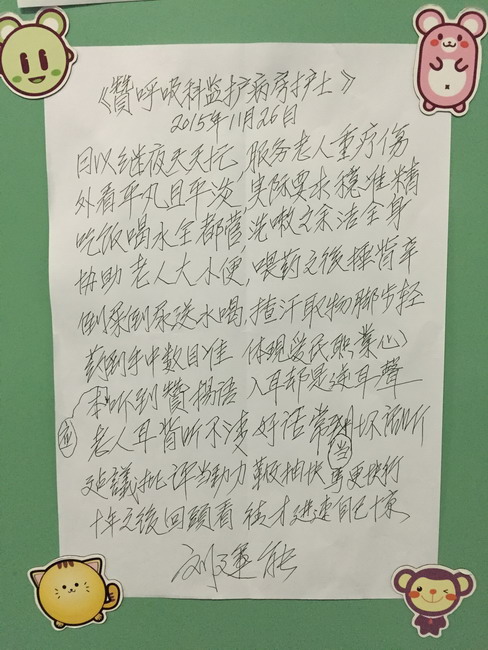 《贊呼吸科监护病房护士》
2015年11月26日
日以继夜天天忙,服务老人重疗伤
外看平凡且平淡,实际要求稳准精
吃饭喝水全都管 洗嗽文余洁全身
协助老人大小便,喂药之後捶背辛
倒尿倒尿送水喝,揸汗取物脚步轻
药倒手中数目准 体现爱民职業心
本 听到贊揚语 入耳都是逆耳聲
应
老人耳背听不清 好话常 坏话听
当
建議批评当动力 鞭抽快馬更快行
十年之後回頭看 徒才進速自己惊
刘運能